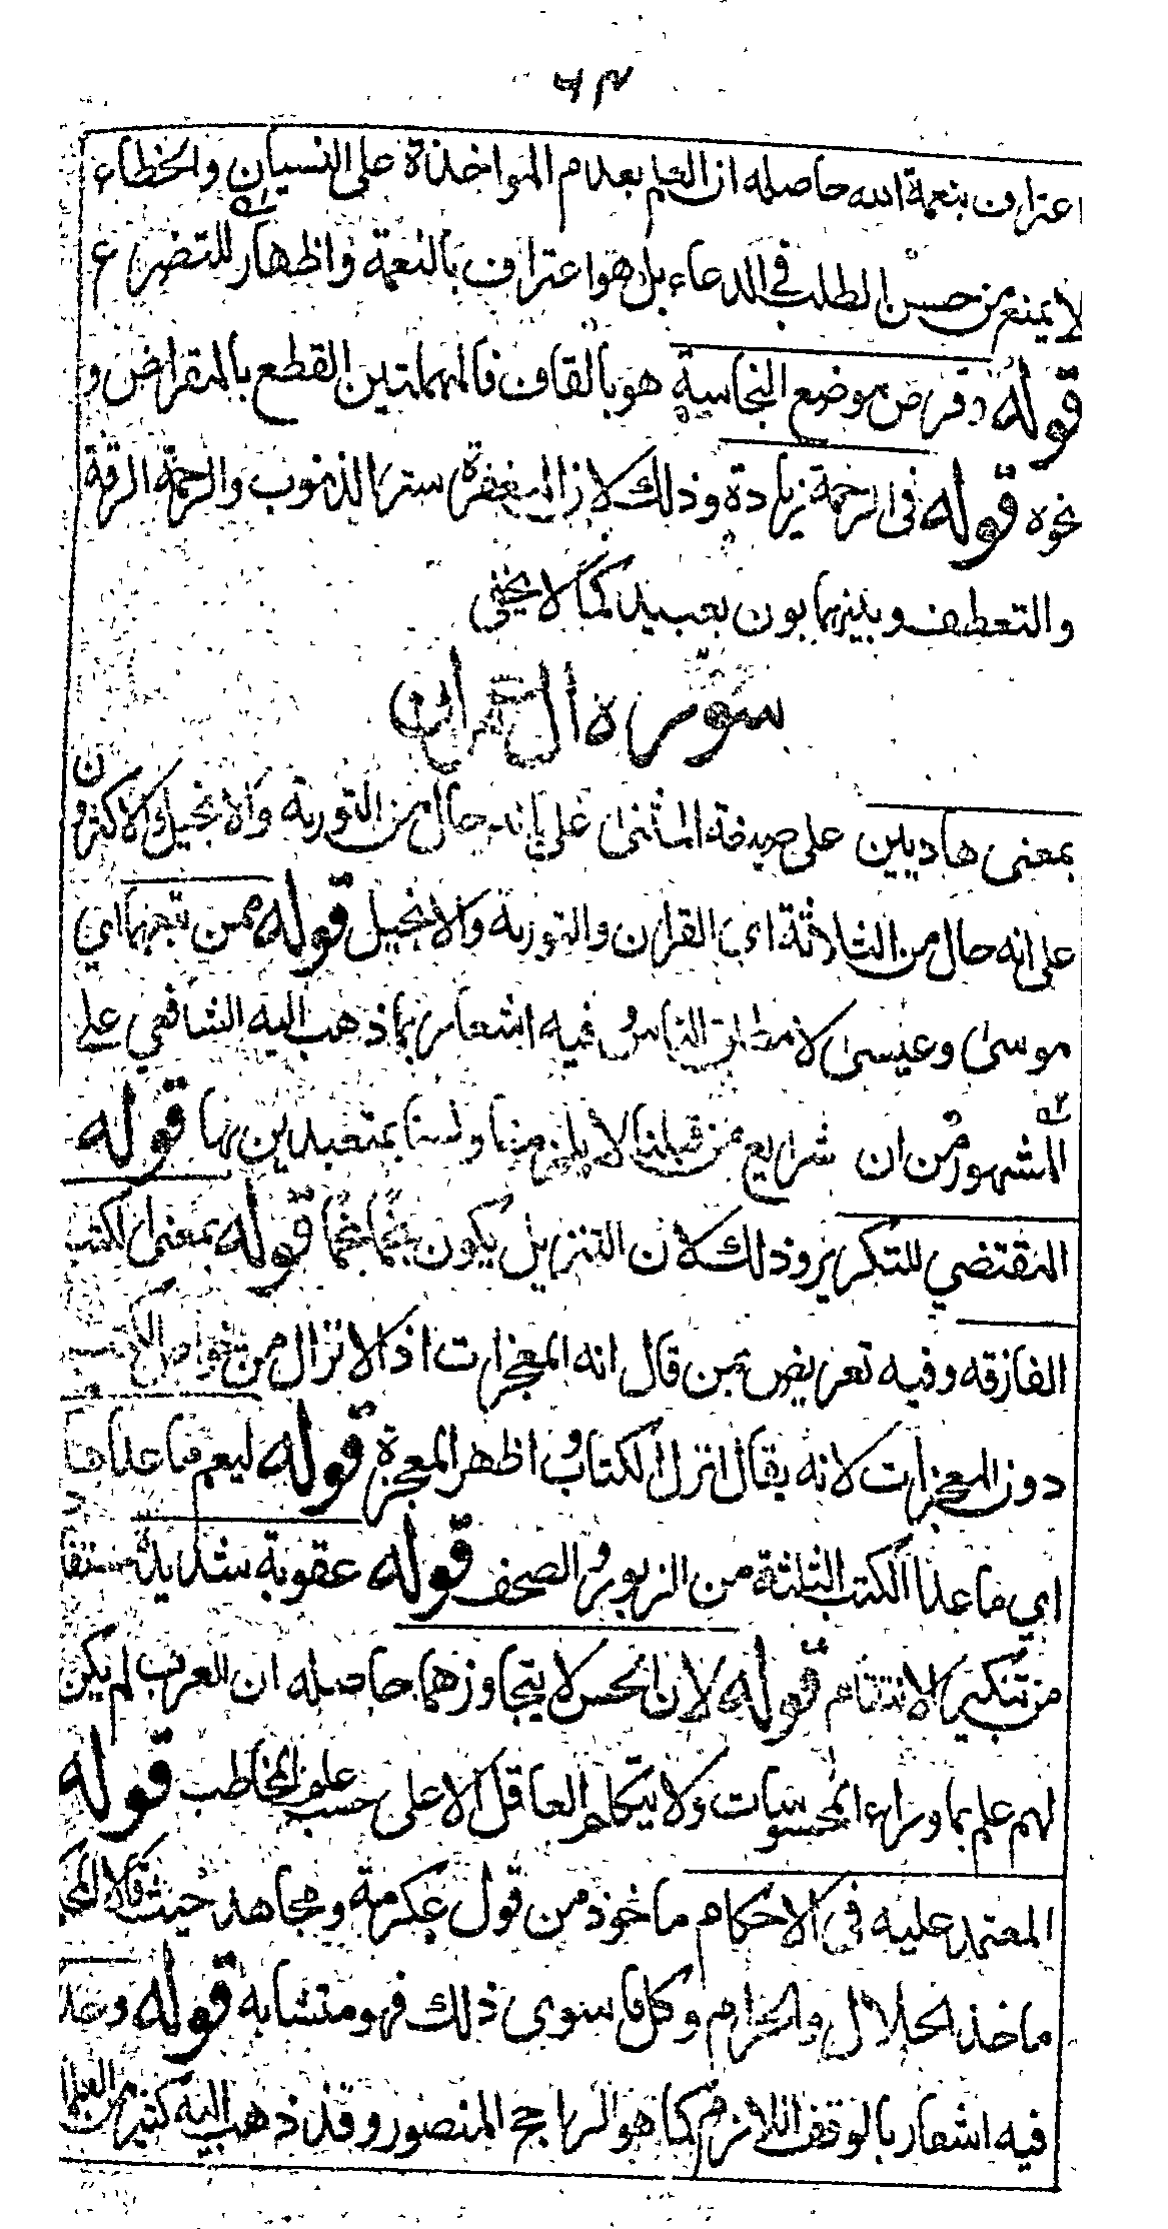 ٦٣
اعتراف بنعمة الله حاصله ان العلم بعدم المواخذة على النسيان والخطاء
لا يمنع من حسن الطلب في الدعاء بل هو اعتراف بالنعمة واظهار للتضرع
قوله وقرض موضع النجاسة هو بالقاف فالمهملتين القطع بالمقراض و
نحوه قوله في الرحمة زيادة وذلك لان المغفرة ستر الذنوب والرحمة الرقة
والتعطف وبينهما بون بعيد كما لا يخفى
سورة ال عمران
بمعنى هاديين على صيغة المثنى على انه حال من التورية والانجيل والاكثرون
على انه حال من الثلاثة اي القرآن والتورية والانجيل قوله ممن تبعهما اي
موسى وعيسى لا مطلق الناس فيه اشعار بما ذهب اليه الشافعي على
المشهور من ان شرايع من قبلنا لا يلزمنا ولسنا بمتعبدين بها قوله
المقتضي للتكرير وذلك لان التنزيل يكون نجما نجما قوله بمعنى الكتب
الفارقه وفيه تعريض بمن قال انه المعجزات اذ الانزال من خواص الكتب
دون المعجزات لانه يقال انزل الكتاب واظهر المعجزة قوله ليعم ما عداها
اي ما عدا الكتب الثلثة من الزبور والصحف قوله عقوبة شديدة مستفاد
من تنكير الانتقام قوله لان الحس لا يتجاوزهما حاصله ان العرب لم يكن
لهم علم بما وراء المحسوسات ولا يتكلم العاقل الا على حسب علم المخاطب قوله
المعتمد عليه في الاحكام ماخوذ من قول عكرمة ومجاهد حيث قالا المحكم
ماخذ الحلال والحرام وكل ما سوى ذلك فهو متشابه قوله وحده
فيه اشعار بالوقف اللازم كما هو الراجح المنصور وقد ذهب اليه كثير من العلماء